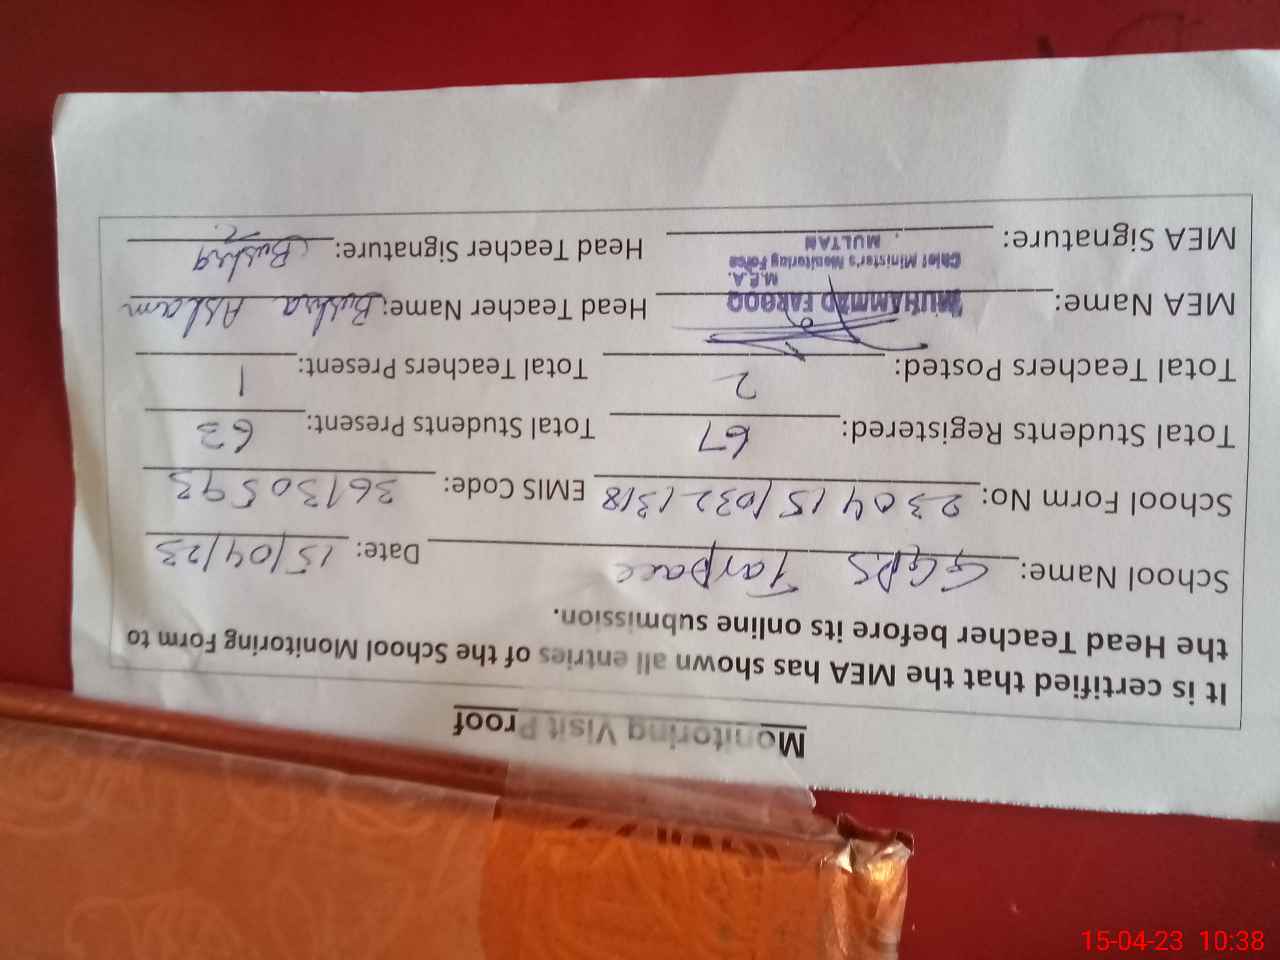 Monitoring Visit Proof
It is certified that the MEA has shown all entries of the School Monitoring Form to
the Head Teacher before its online submission.
School Name: GGPS Tarpaee Date: 15/04/23
School Form No: 230415/0321318 EMIS Code: 36130593
Total Students Registered: 67 Total Students Present: 62
Total Teachers Posted: 2 Total Teachers Present: 1
MEA Name: MUHAMMAD FAROOQ Head Teacher Name: Bushra Aslam
M.E.A.
Chief Minister's Monitoring Force
MULTAN
MEA Signature: Head Teacher Signature: Bushra
15-04-23 10:38